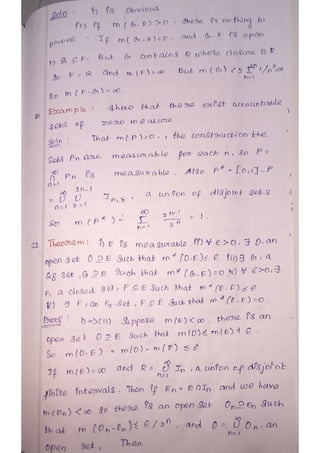 Soln : i) is obvious
ii) If m(G-F) > 0 . there is nothing to
prove. If m(G-F)=0. and G-F is open
i) G ⊆ F. But G contains Q whose closure is R
so F = R and m(F)=∞. But m(G) < 2 ∞Σn=1 1/n²<∞
So m(F-G) = ∞.
Example : Show that there exist uncountable
sets of zero measure.
Soln : That m(P)=0. , the construction the
sets Pn are measurable for each n, so P =
∞∩n=1 Pn is measurable. Also P* = [0,1]-P
= ∞∪n=1 2n-1∪r=1 In,r , a union of disjoint sets.
So m(P*) = ∞Σn=1 2n-1/3n = 1.
Theorem : i) E is measurable ii) ∀ ε>0, ∃ O, an
open set O ⊇ E such that m*(O-E) ≤ ε iii) ∃ G, a
Gδ set, G ⊇ E such that m*(G-E)=0 iv) ∀ ε>0, ∃
F, a closed set, F ⊆ E such that m*(E-F) ≤ ε
v) ∃ F, an Fσ-set, F ⊆ E such that m*(E-F)=0.
Proof : i)=>(ii) Suppose m(E)<∞. there is an
open set O ⊇ E such that m(O) ≤ m(E)+ε.
So m(O-E) = m(O) - m(E) ≤ ε.
If m(E)=∞ and R = ∞∪n=1 In, a union of disjoint
finite intervals. Then if En = E∩In and we have
m(En)<∞ so there is an open set On⊇En such
that m(On-En) ≤ ε/2n . and O = ∞∪n=1 On. an
open set, Then